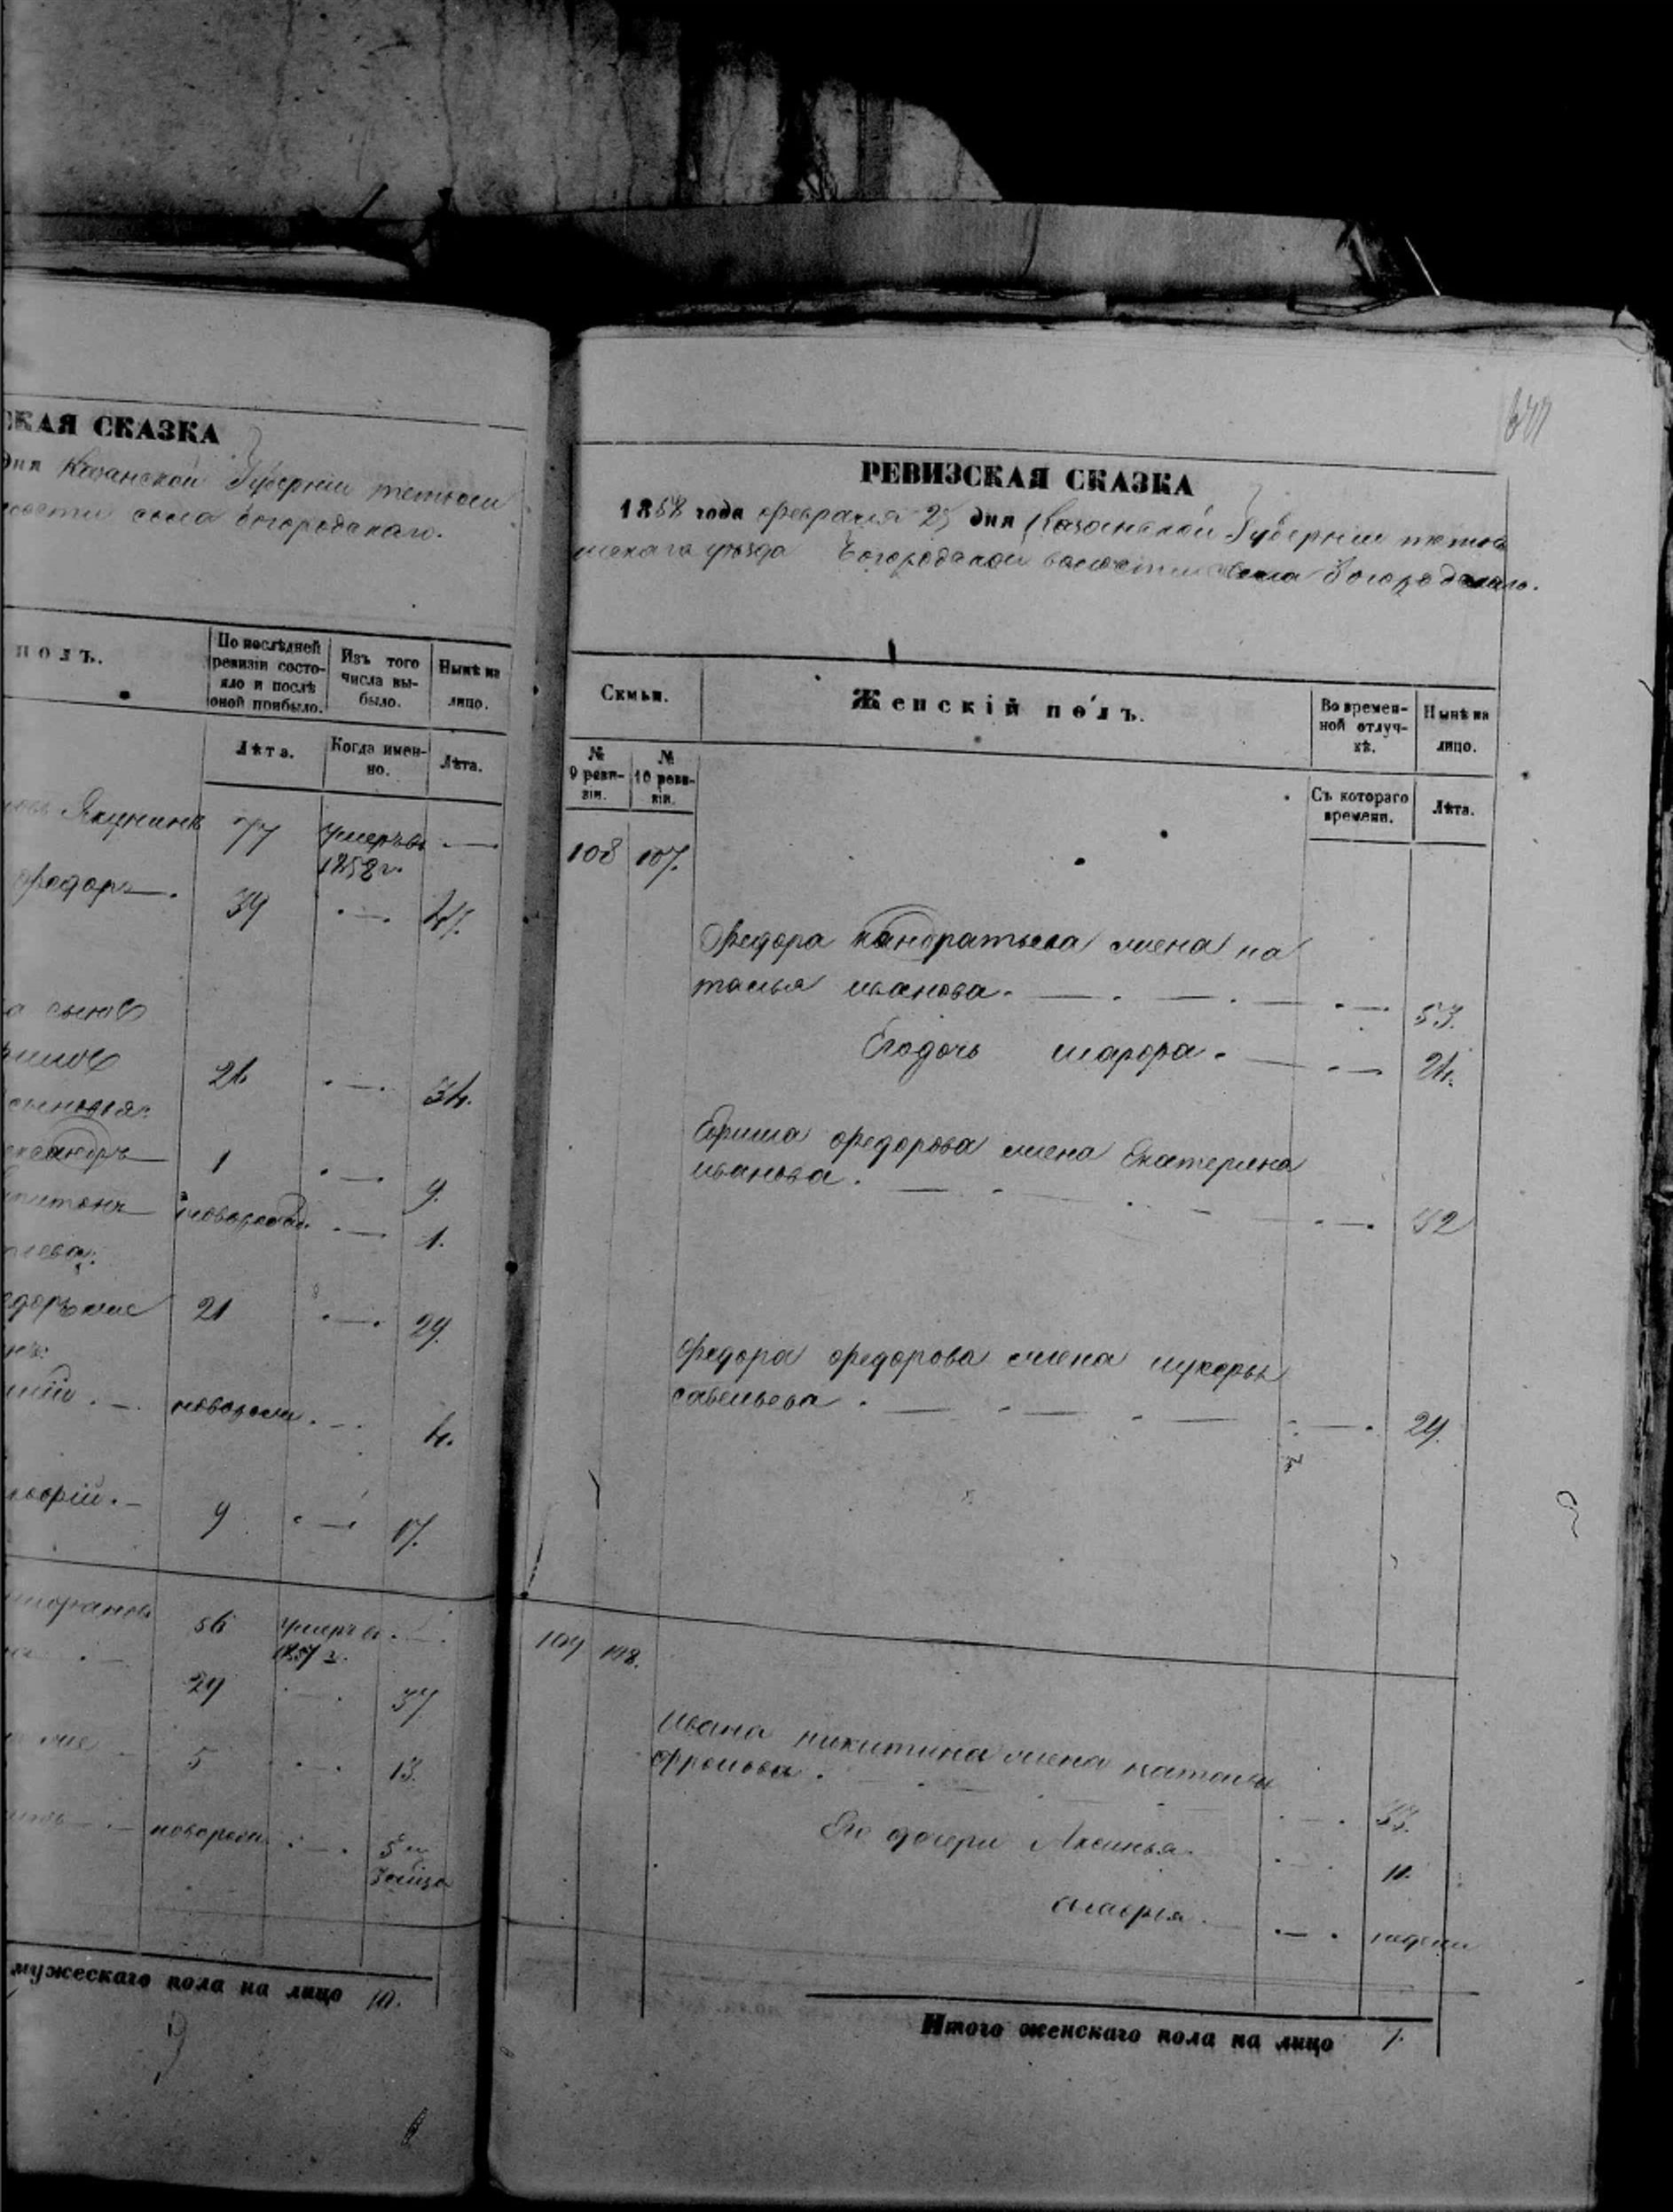 СКАЯ СКАЗКА
дня Казанской Губерніи тетюш
волости села Богородскаго.
полъ.
По послѣдней ревизіи состо-
яло и послѣ
оной прибыло.
Изъ того
числа вы-
было.
Нынѣ на
лицо.
Лѣта.
Когда имен-
но.
Лѣта.
Якунинъ 77 умеръ въ
1852 г.
Федоръ 39 47.
а сынъ
26 34.
сыновья:
ександръ 1 9.
питонъ новорожд. 1.
21 29.
новорож. 4.
9 17.
56 умеръ въ
1857 г.
29 37
5 13.
новорож. 5 м
мужескаго пола на лицо 10.
РЕВИЗСКАЯ СКАЗКА
1858 года февраля 25 дня Казанской Губерніи тетю
шскаго уѣзда Богородской волости села Богородскаго.
Семьи.
Женскій полъ.
Во времен-
ной отлуч-
кѣ.
Нынѣ на
лицо.
№
9 реви-
зіи.
№
10 реви-
зіи.
Съ котораго
времени.
Лѣта.
108 107.
Федора кандратьева жена на
талья иванова. 53.
Егодочь марфа. 24.
Ефима федорова жена Екатерина
иванова. 32
федора федорова жена лукерья
савельева. 29.
109 108.
ивана никитина жена наталья
фролова. 33.
Его дочери Аксинья 11.
марфья. недели
Итого женскаго пола на лицо 7.